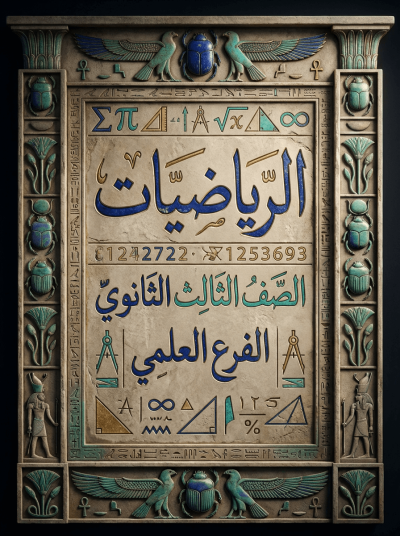 ∑π √x ∞
الرياضيّات
1242722 · 1253693
الصَّفُ الثَّالِث الثَانويّ
الفرع العلمِي
∞
١٢٥
%